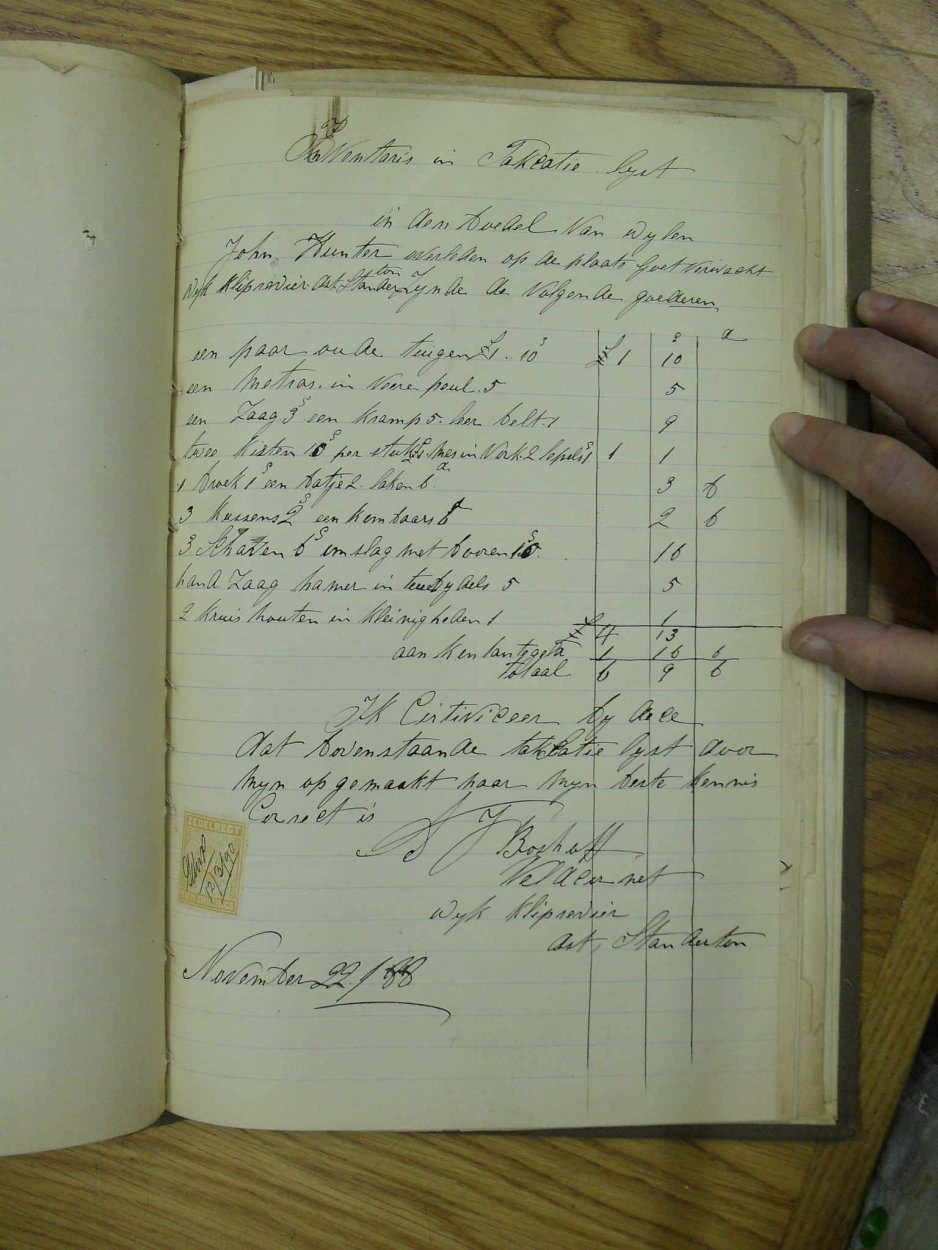 Inventaris in Takcatie lyst
in den boedel van wylen
John Hunter overleden op de plaats Goet verwacht
wyk kliprevier dist Standerton Zynde de volgende goederen
£ s d
een paar oude tuigen £1.10s £ 1 10
een Metras in veere peul 5 5
een Zaag 3s een kramp 5 leer belt 1 9
twee kisten 10s per stuk mes in vork 2 lepels 1 1 1
1 broek 1s een batje 2 laken 6d 3 6
3 kussens 2s een kombaars 6d 2 6
3 Schaven 6s omslag met booren 10s 16
hand Zaag hamer in bydels 5 5
2 kruis houten in kleinigheden 1 1
£ 4 13
aan kontant geld 1 16 6
totaal 6 9 6
Ik Certiviceer by dece
dat bovenstaande taktatie lyst door
myn opgemaakt naar myn beste kennis
Correct is
Boshoff
Veldcornet
wyk kliprevier
dist, Standerton
ZEGELRECHT
12/3/90
November 22/88